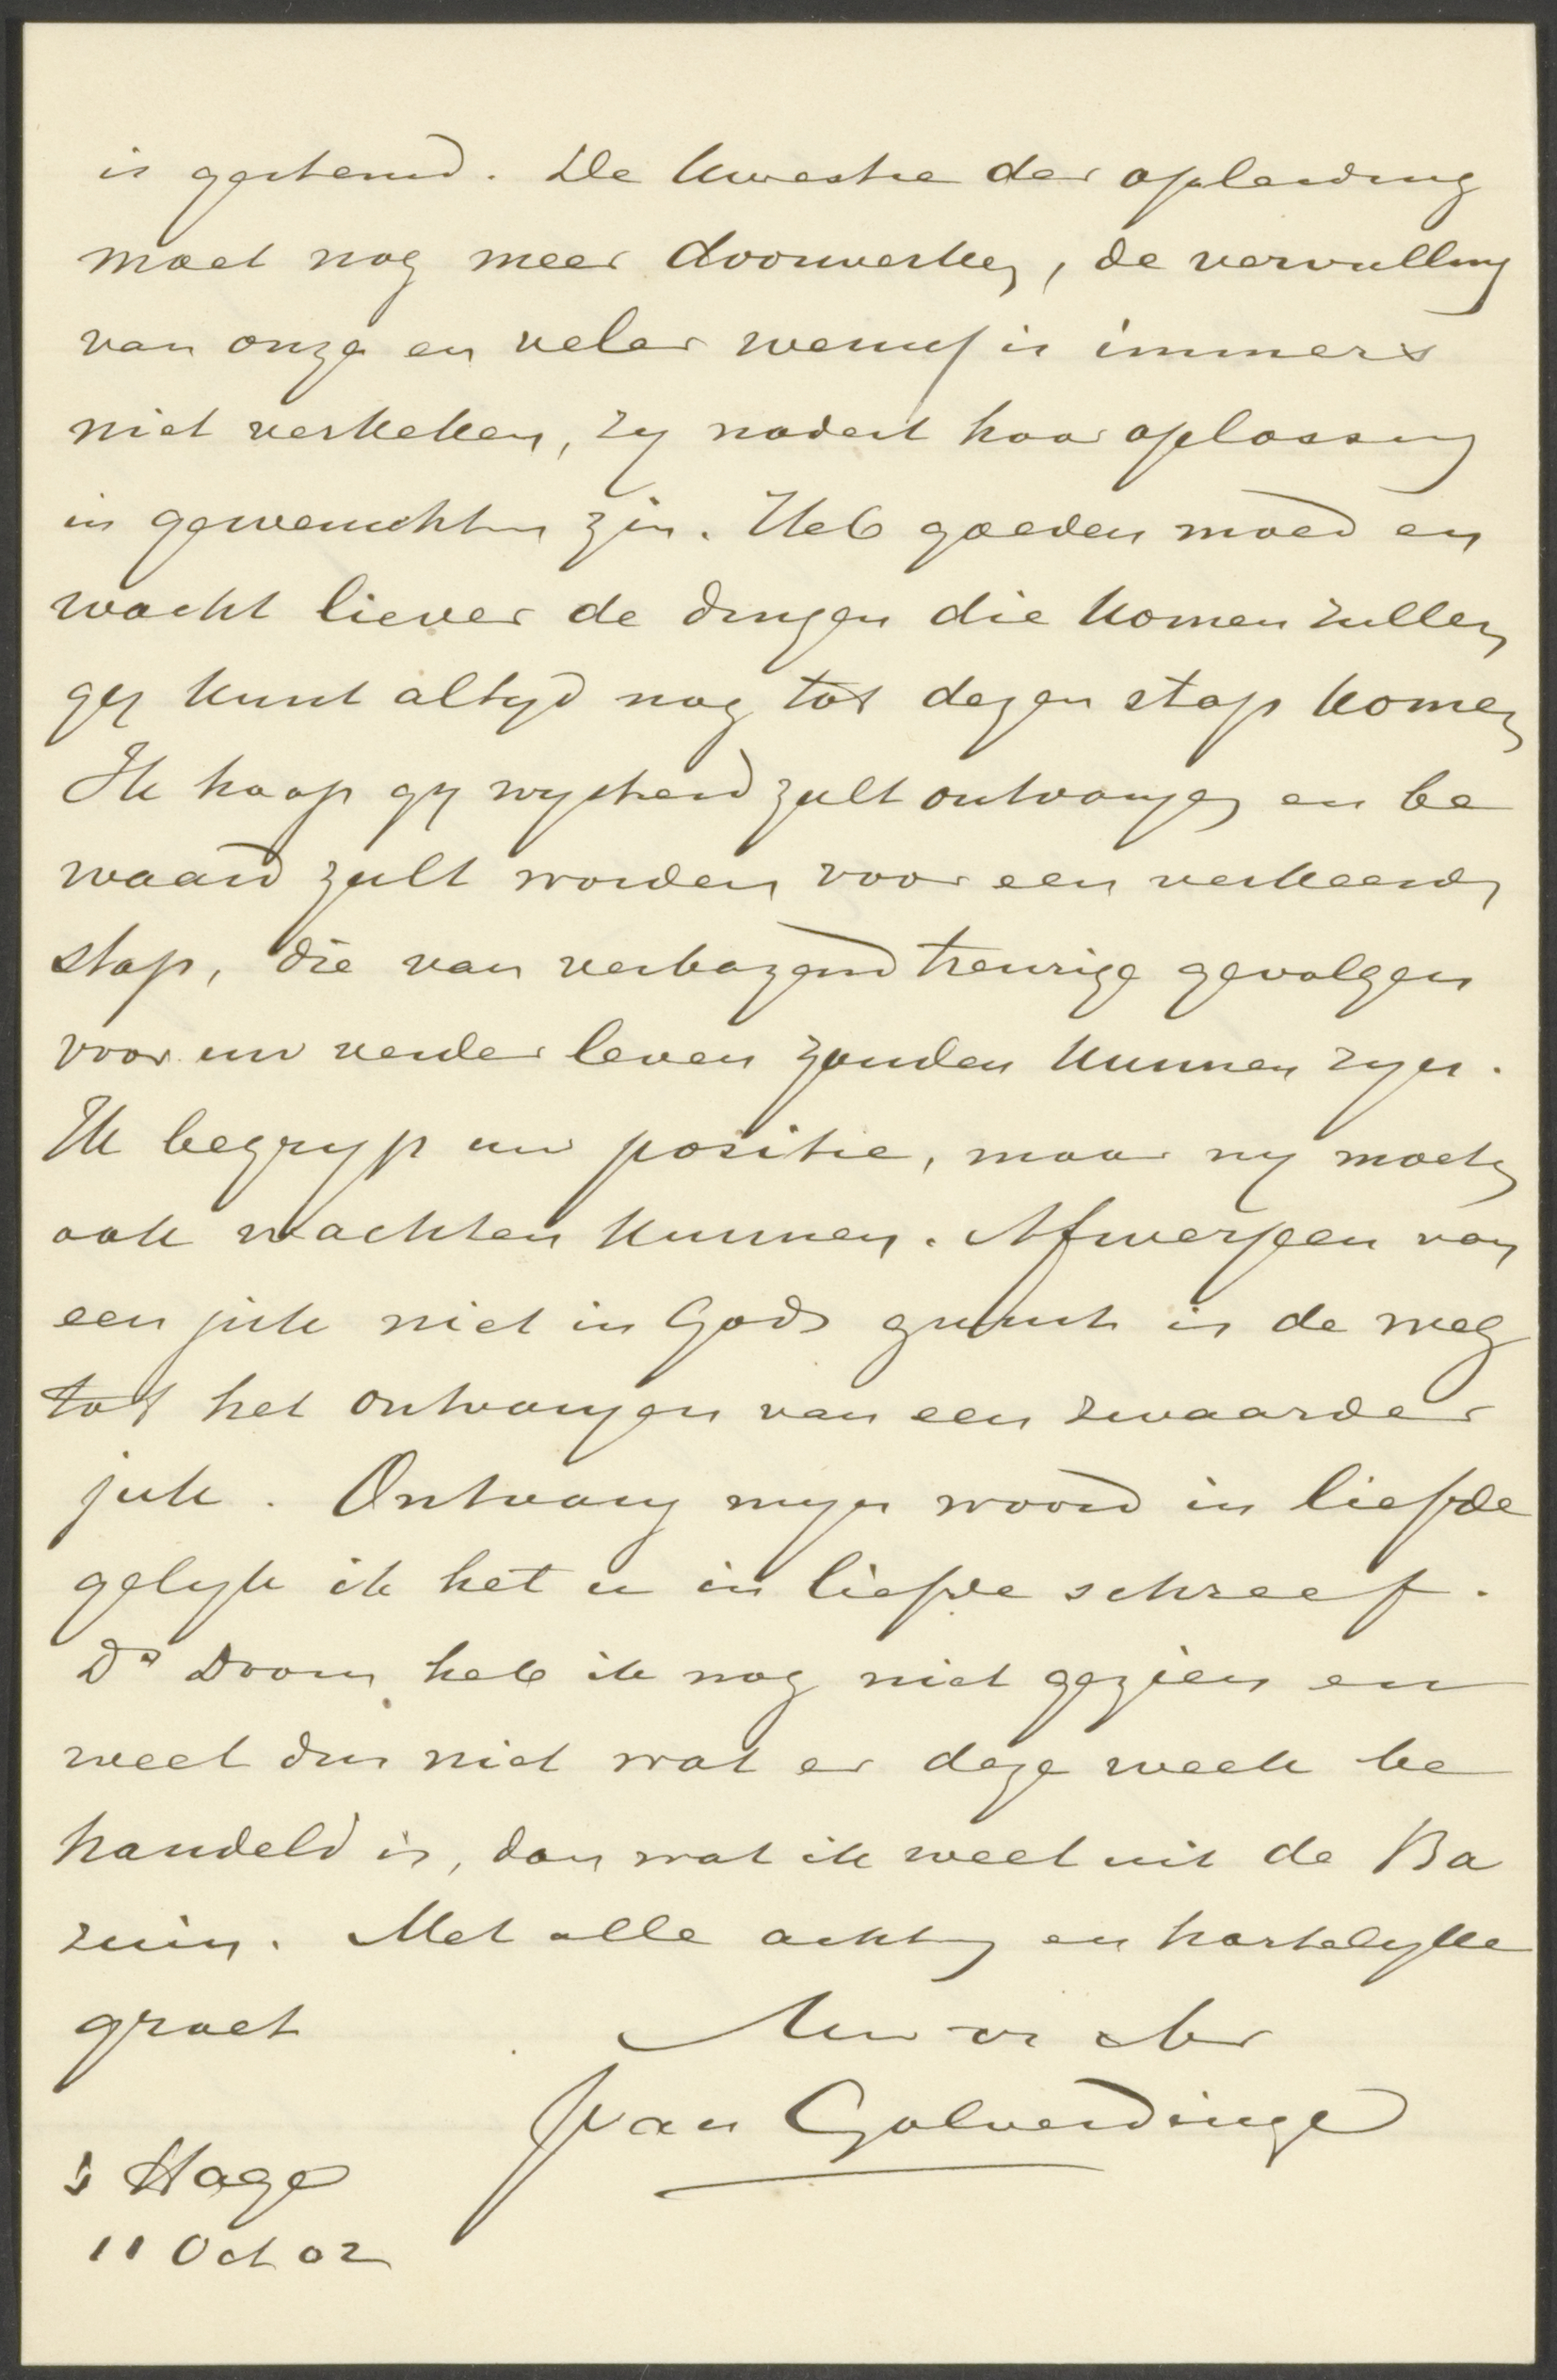 is gestemd. De kwestie der opleiding
moet nog meer doorwerken, de vervulling
van onze en veler wensch is immers
niet verkeken, zy nadert haar oplossing
in gewenschten zin. Heb goeden moed en
wacht liever de dingen die komen zullen
gy kunt altyd nog tot dezen stap komen
Ik hoop gy wysheid zult ontvangen en be
waard zult worden voor een verkeerden
stap, die van verbazend treurige gevolgen
voor uw verder leven zouden kunnen zyn.
Ik begryp uw positie, maar wy moeten
ook wachten kunnen. Afwerpen van
een juk niet in Gods gunst is de weg
tot het ontvangen van een zwaarder
juk. Ontvang myn woord in liefde
gelyk ik het u in liefde schreef.
Ds Doorn heb ik nog niet gezien en
weet dus niet wat er deze week be
handeld is, dan wat ik weet uit de Ba
zuin. Met alle achting en hartelyke
groet
Uw vr
Jvan Golverdinge
s Hage
11 Oct 02